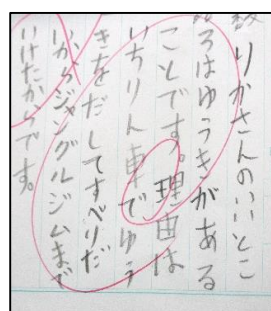 りかさんのいいとこ
ろはゆうきがある
ことです。理由は
いちりん車でゆう
きをだしてすべりだ
いからジャングルジムまで
いけたからです。